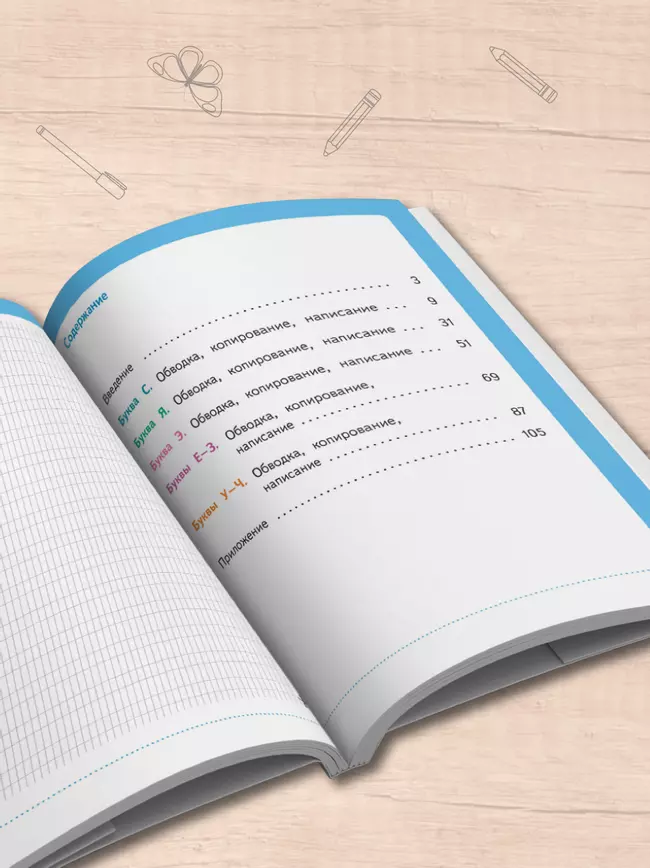 Содержание
Введение ........ 3
Буква С. Обводка, копирование, написание ... 9
Буква Я. Обводка, копирование, написание ... 31
Буква Э. Обводка, копирование, написание ... 51
Буквы Е–З. Обводка, копирование,
написание ........ 69
Буквы У–Ч. Обводка, копирование,
написание ........ 87
Приложение ........ 105